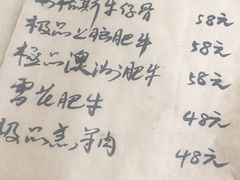 斯牛仔骨 58元
极品上脑肥牛 58元
極品澳洲肥牛 58元
雪花肥牛 48元
极品羔羊肉 48元